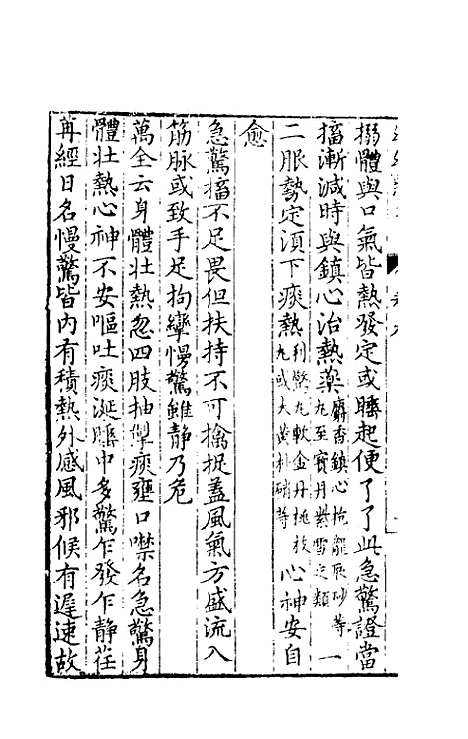 搦體與口氣皆熱發定或睡起便了了此急驚證當
搐漸減時與鎮心治熱藥麝香鎮心抱龍辰砂等丸至寶丹紫雪之類一
二服勢定須下痰熱利驚丸軟金丹桃枝丸或大黃朴硝等心神安自
愈
急驚搐不足畏但扶持不可擒捉蓋風氣方盛流入
筋脉或致手足拘攣慢驚雖靜乃危
萬全云身體壯熱忽四肢抽掣痰壅口噤名急驚身
體壯熱心神不安嘔吐痰涎睡中多驚乍發乍靜荏
苒經日名慢驚皆内有積熱外感風邪候有遲速故